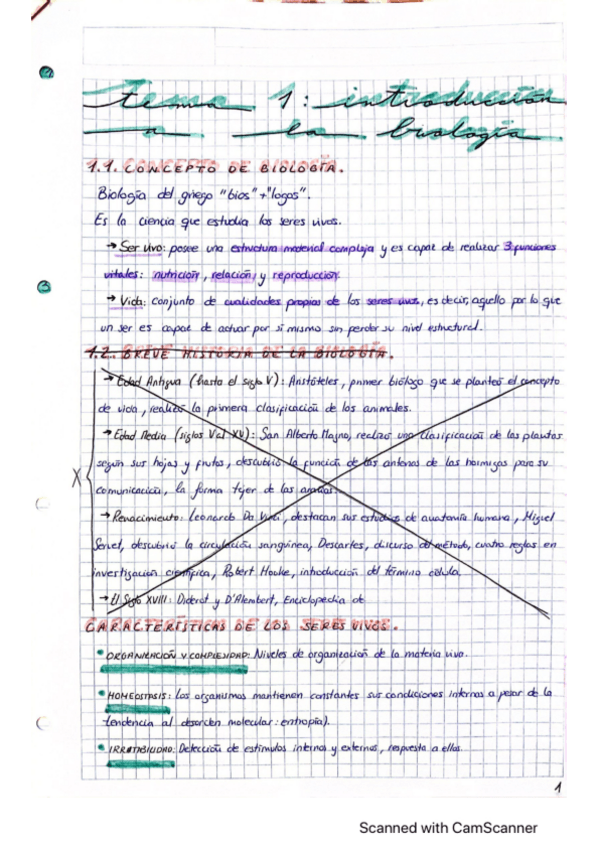 tema 1: introducción
a la biología
1.1. CONCEPTO DE BIOLOGÍA.
Biología del griego "bios"+"logos".
Es la ciencia que estudia los seres vivos.
→ Ser vivo: posee una estructura material compleja y es capaz de realizar 3 funciones
vitales: nutrición, relación, y reproducción.
→ Vida: conjunto de cualidades propias de los seres vivos, es decir, aquello por lo que
un ser es capaz de actuar por sí mismo sin perder su nivel estructural.
1.2. BREVE HISTORIA DE LA BIOLOGÍA.
→ Edad Antigua (hasta el siglo V): Aristóteles, primer biólogo que se planteó el concepto
de vida, realizó la primera clasificación de los animales.
→ Edad Media (siglos V al XV): San Alberto Magno, realizó una clasificación de las plantas
según sus hojas y frutos, descubrió la función de las antenas de las hormigas para su
X comunicación, la forma tejer de las arañas.
→ Renacimiento: Leonardo Da Vinci, destacan sus estudios de anatomía humana, Miguel
Servet, descubrió la circulación sanguínea, Descartes, discurso del método, cuatro reglas en
investigación científica, Robert Hooke, introducción del término célula.
→ El Siglo XVIII: Diderot y D'Alembert, Enciclopedia de
CARACTERÍSTICAS DE LOS SERES VIVOS.
• ORGANIZACIÓN Y COMPLEJIDAD: Niveles de organización de la materia viva.
• HOMEOSTASIS: Los organismos mantienen constantes sus condiciones internas a pesar de la
tendencia al desorden molecular: entropía).
• IRRITABILIDAD: Detección de estímulos internos y externos, respuesta a ellos.
1
Scanned with CamScanner